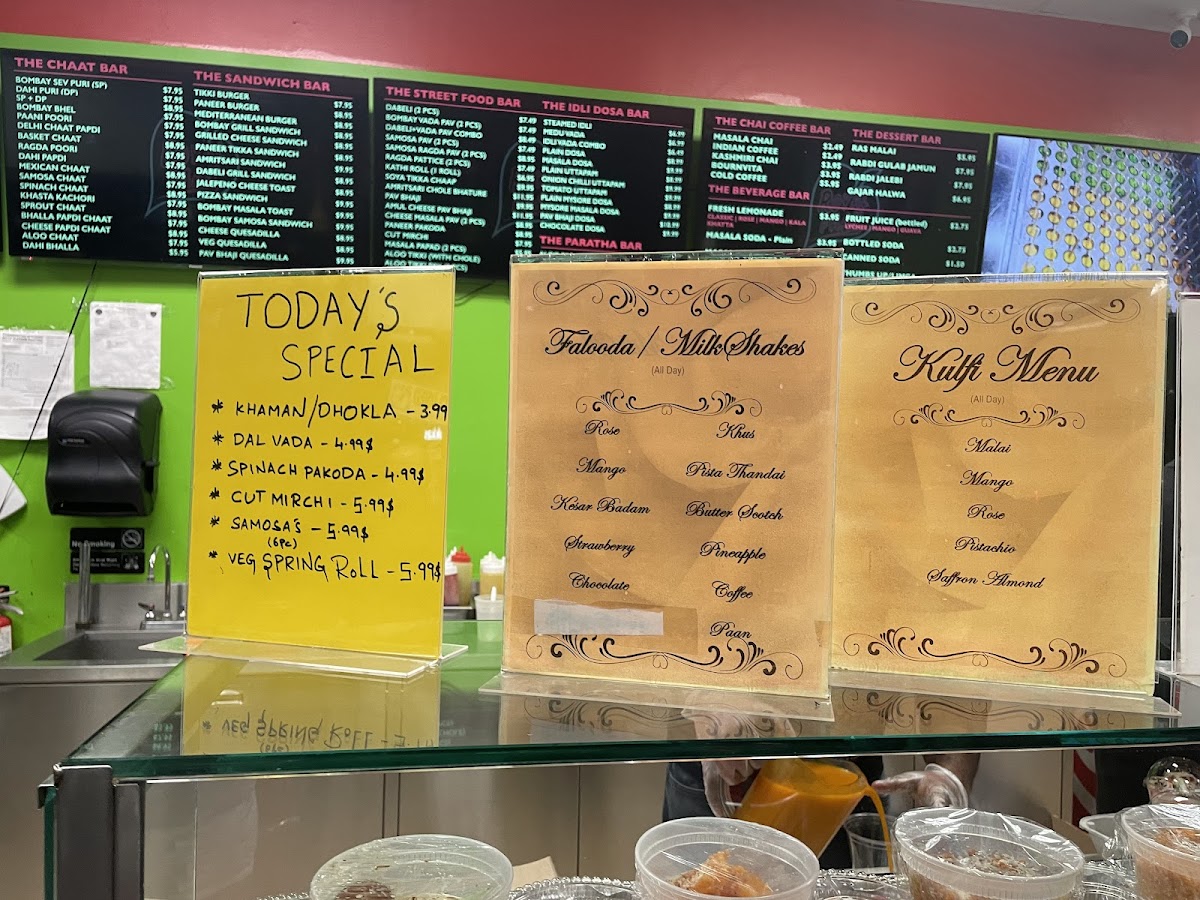 THE CHAAT BAR
BOMBAY SEV PURI (SP) $7.95
DAHI PURI (DP) $7.95
SP + DP $8.95
BOMBAY BHEL
PAANI POORI
DELHI CHAAT PAPDI
BASKET CHAAT
RAGDA POORI
DAHI PAPDI
MEXICAN CHAAT
SAMOSA CHAAT
SPINACH CHAAT
KHASTA KACHORI
SPROUT CHAAT
BHALLA PAPDI CHAAT
CHEESE PAPDI CHAAT
ALOO CHAAT
DAHI BHALLA $5.95
THE SANDWICH BAR
TIKKI BURGER $7.95
PANEER BURGER
MEDITERRANEAN BURGER
BOMBAY GRILL SANDWICH
GRILLED CHEESE SANDWICH
PANEER TIKKA SANDWICH
AMRITSARI SANDWICH
DABELI GRILL SANDWICH
JALEPENO CHEESE TOAST
PIZZA SANDWICH
BOMBAY MASALA TOAST
BOMBAY SAMOSA SANDWICH
CHEESE QUESADILLA
VEG QUESADILLA
PAV BHAJI QUESADILLA $9.95
THE STREET FOOD BAR
DABELI (2 PCS) $7.49
BOMBAY VADA PAV (2 PCS)
DABELI+VADA PAV COMBO
SAMOSA PAV (2 PCS)
SAMOSA RAGDA PAV (2 PCS)
RAGDA PATTICE (2 PCS)
KATHI ROLL (1 ROLL)
SOYA TIKKA CHAAP
AMRITSARI CHOLE BHATURE
PAV BHAJI
AMUL CHEESE PAV BHAJI
CHEESE MASALA PAV (2 PCS)
PANEER PAKODA
CUT MIRCHI
MASALA PAPAD (2 PCS)
ALOO TIKKI (WITH CHOLE)
THE IDLI DOSA BAR
STEAMED IDLI $6.99
MEDU VADA
IDLI/VADA COMBO
PLAIN DOSA
MASALA DOSA
PLAIN UTTAPAM
ONION CHILLI UTTAPAM
TOMATO UTTAPAM
PLAIN MYSORE DOSA
MYSORE MASALA DOSA
PAV BHAJI DOSA
CHOCOLATE DOSA
THE PARATHA BAR
THE CHAI COFFEE BAR
MASALA CHAI $2.49
INDIAN COFFEE $2.49
KASHMIRI CHAI $3.95
BOURNVITA $3.95
COLD COFFEE $3.95
THE BEVERAGE BAR
FRESH LEMONADE $3.95
CLASSIC | ROSE | MANGO | KALA KHATTA
MASALA SODA - Plain $3.95
THE DESSERT BAR
RAS MALAI $5.95
RABDI GULAB JAMUN $7.95
RABDI JALEBI $7.95
GAJAR HALWA $6.95
FRUIT JUICE (bottled) $3.75
LYCHEE | MANGO | GUAVA
BOTTLED SODA $3.75
CANNED SODA $1.50
THUMBS UP/LIMCA
No Smoking
TODAY'S
SPECIAL
* KHAMAN/DHOKLA - 3.99
* DAL VADA - 4.99$
* SPINACH PAKODA - 4.99$
* CUT MIRCHI - 5.99$
* SAMOSA'S - 5.99$
(6pc)
* VEG SPRING ROLL - 5.99$
Falooda / MilkShakes
(All Day)
Rose Khus
Mango Pista Thandai
Késar Badam Butter Scotch
Strawberry Pineapple
Chocolate Coffee
Paan
Kulfi Menu
(All Day)
Malai
Mango
Rose
Pistachio
Saffron Almond